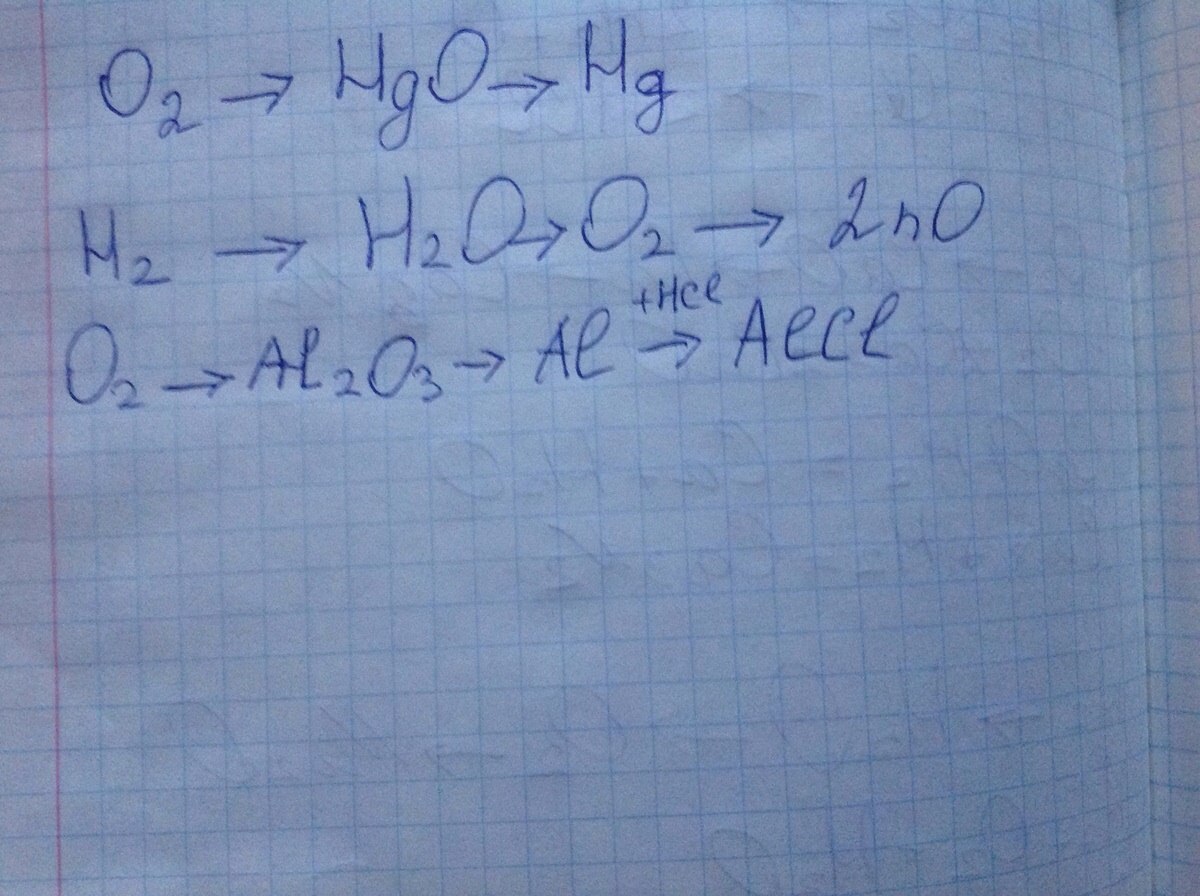 O₂ → HgO → Hg
H₂ → H₂O → O₂ → ZnO
O₂ → Al₂O₃ → Al +HCl → AlCl